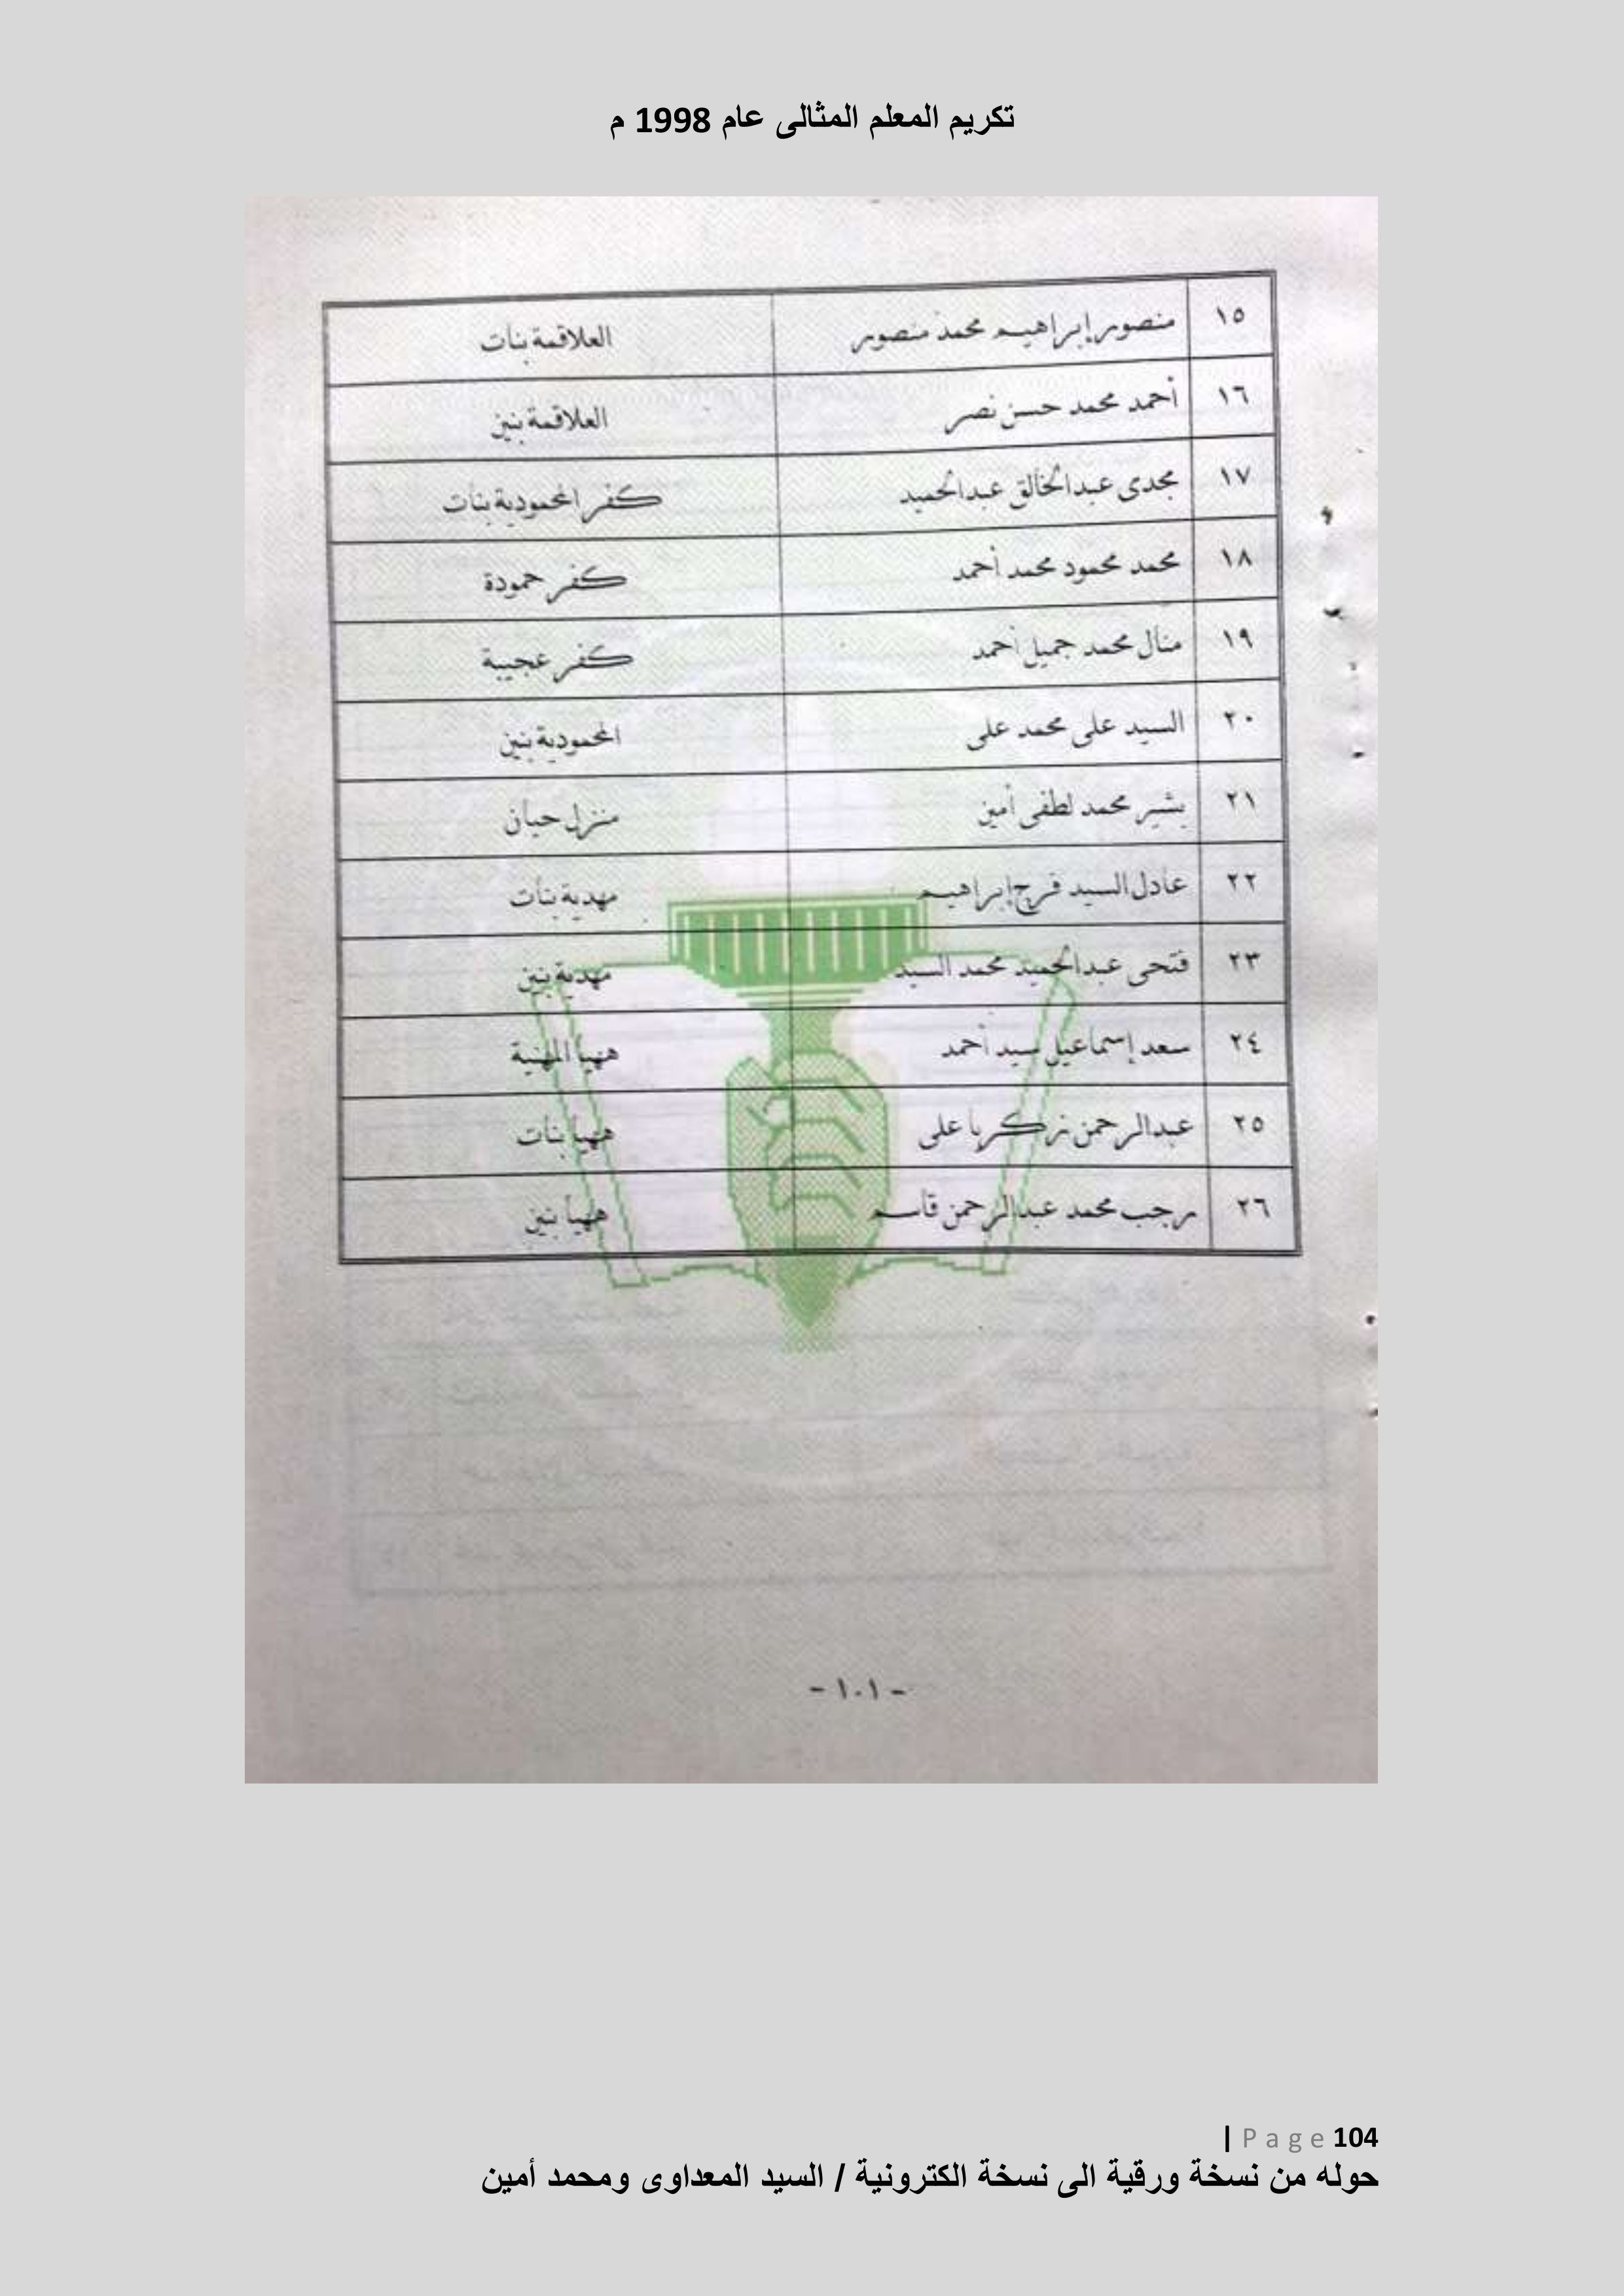 تكريم المعلم المثالى عام 1998 م
١٥ منصور إبراهيم محمد منصور العلاقمة بنات
١٦ أحمد محمد حسن نصر العلاقمة بنين
١٧ مجدى عبدالخالق عبدالحميد كفر المحمودية بنات
١٨ محمد محمود محمد أحمد كفر حمودة
١٩ منال محمد جميل أحمد كفر عجيبة
٢٠ السيد على محمد على المحمودية بنين
٢١ بشير محمد لطفى أمين منزل حيان
٢٢ عادل السيد فرج إبراهيم مهدية بنات
٢٣ فتحى عبدالحميد محمد السيد مهدية بنين
٢٤ سعد إسماعيل سيد أحمد ههيا المهنية
٢٥ عبدالرحمن زكريا على ههيا بنات
٢٦ رجب محمد عبدالرحمن قاسم ههيا بنين
- ١٠١ -
104 Page |
حوله من نسخة ورقية الى نسخة الكترونية / السيد المعداوى ومحمد أمين